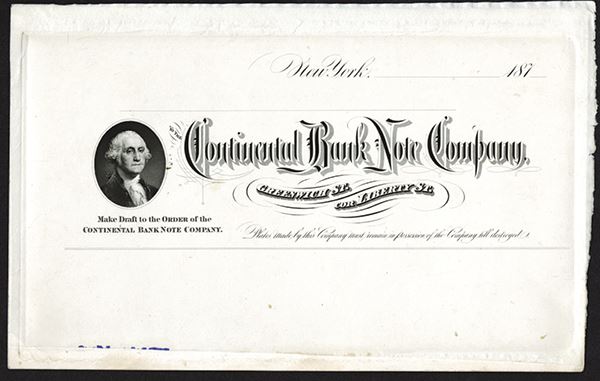 New York, 187
To The
Continental Bank Note Company,
GREENWICH ST. COR. LIBERTY ST.
Make Draft to the ORDER of the
CONTINENTAL BANK NOTE COMPANY.
Plates made by this Company must remain in possession of the Company till destroyed.